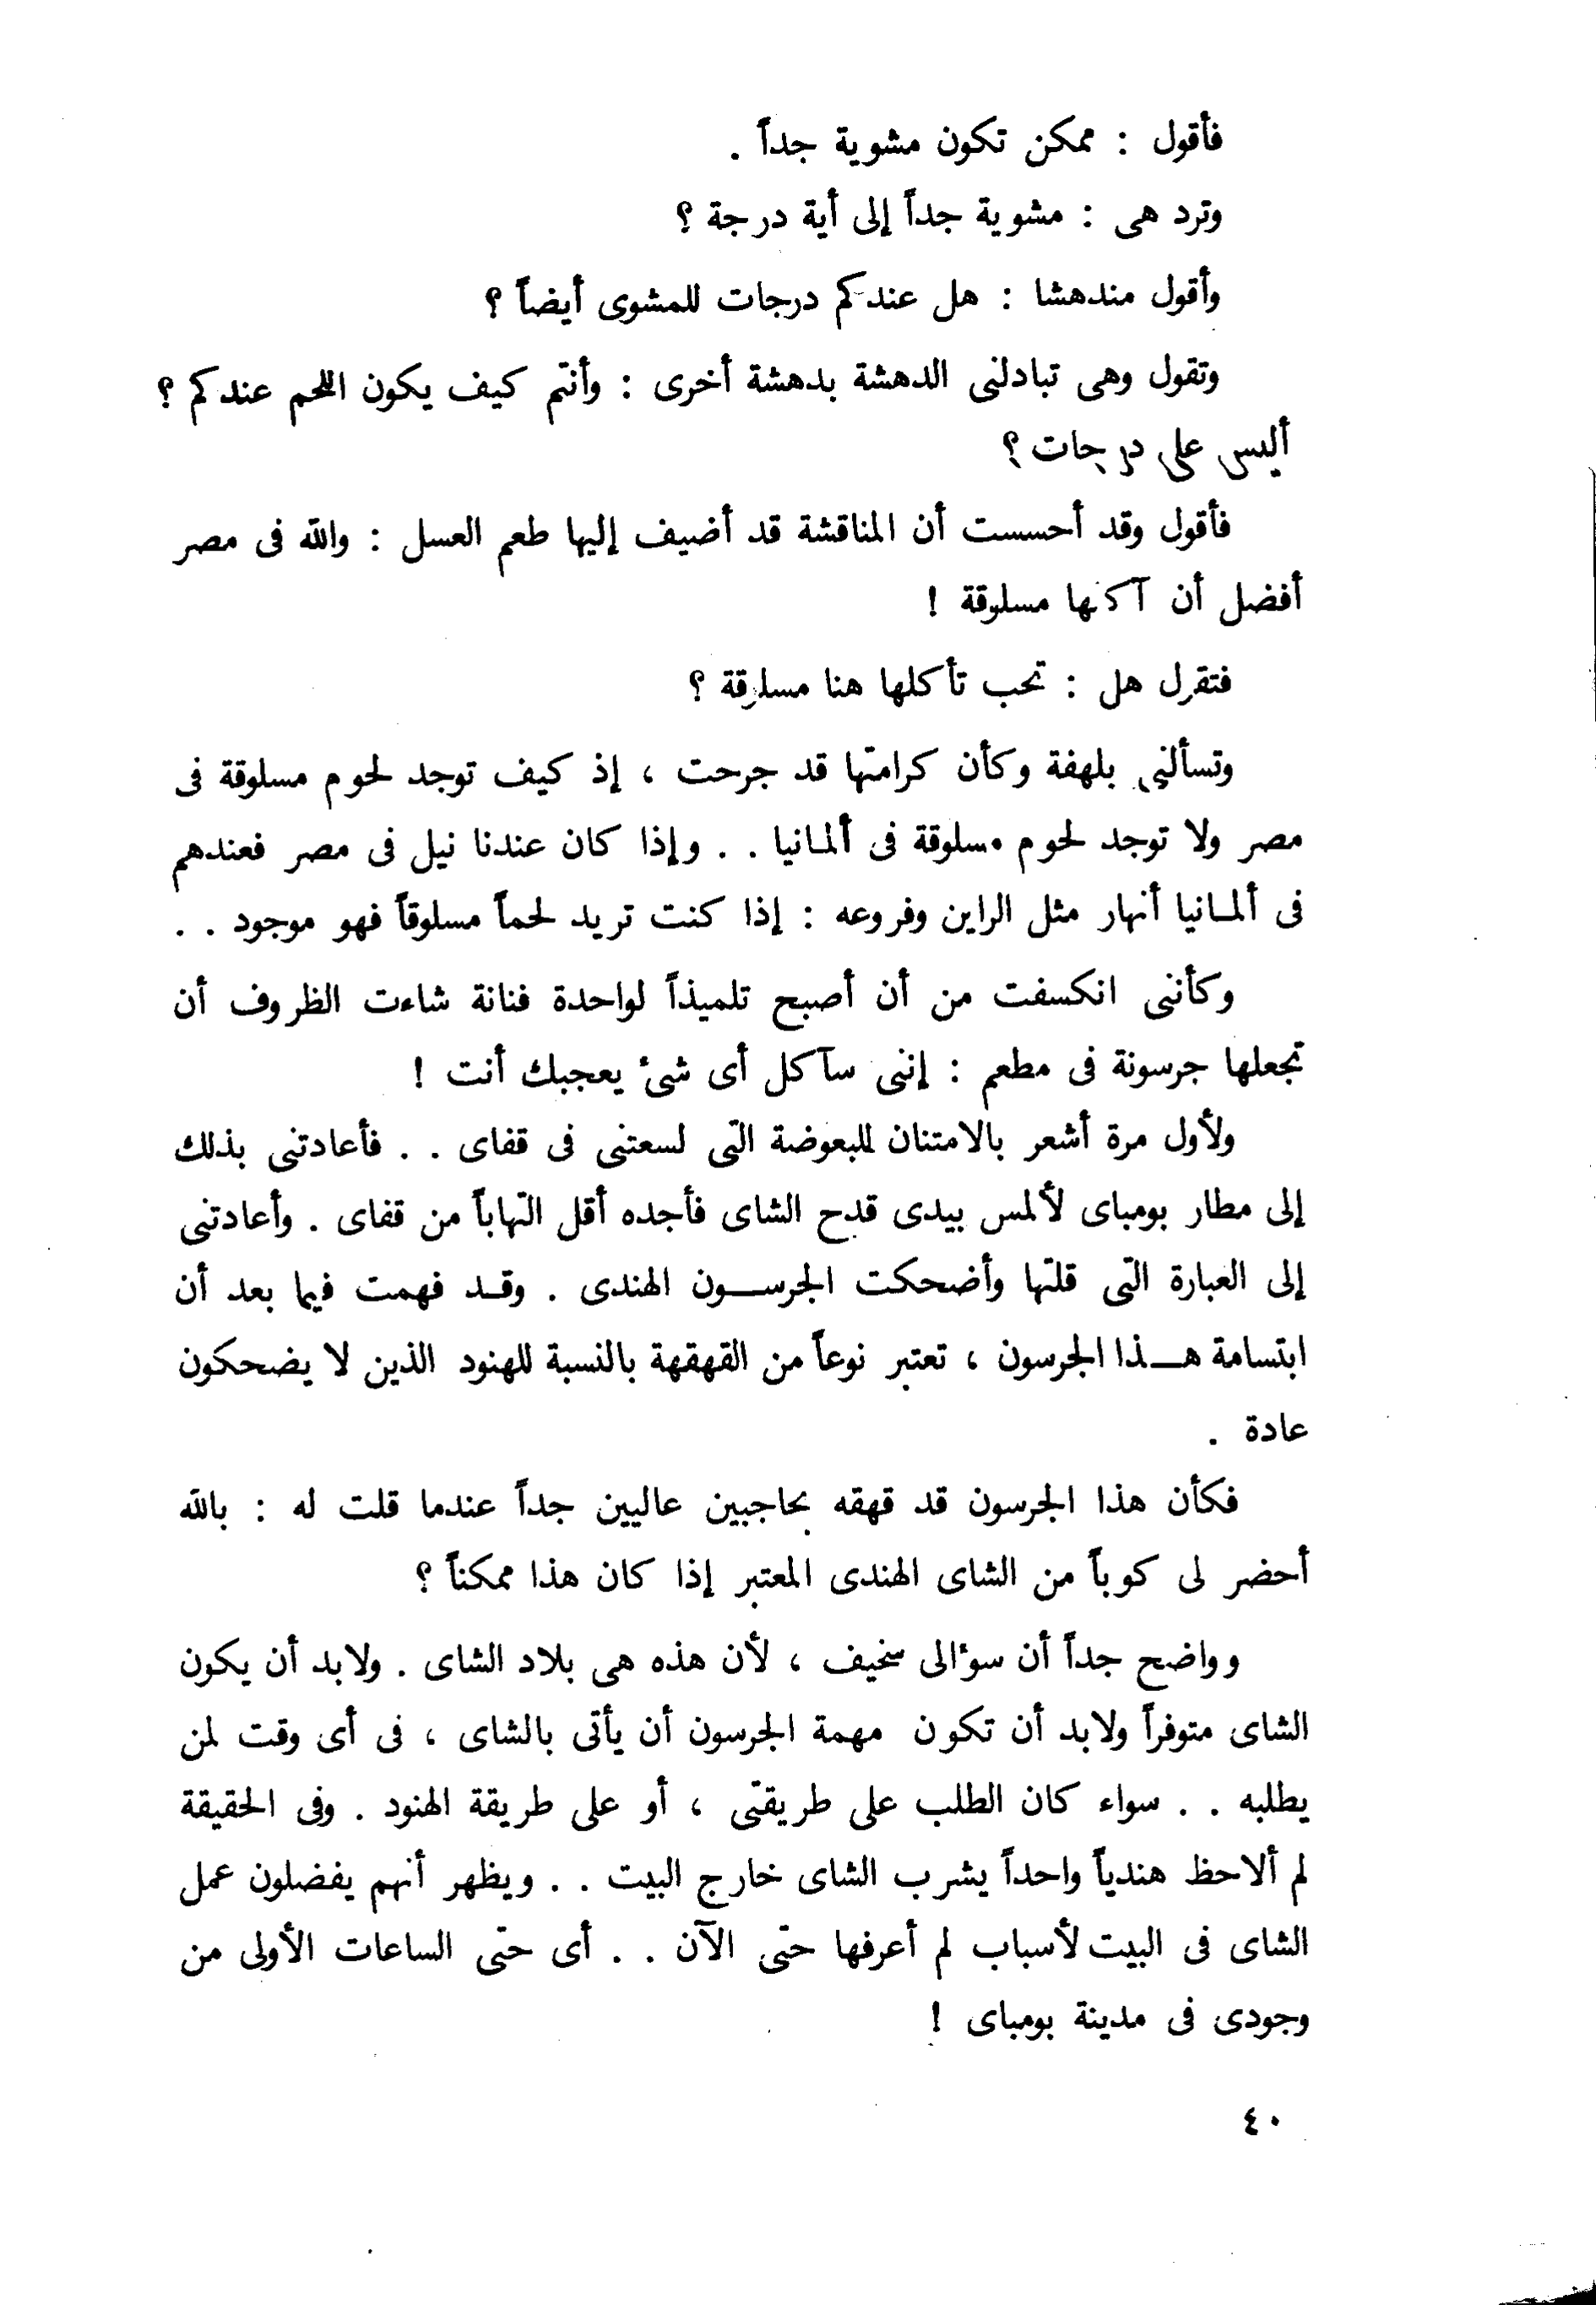 فأقول : ممكن تكون مشوية جداً .
وترد هى : مشوية جداً إلى أية درجة ؟
وأقول مندهشا : هل عندكم درجات للمشوى أيضاً ؟
وتقول وهى تبادلنى الدهشة بدهشة أخرى : وأنتم كيف يكون اللحم عندكم ؟
أليس على درجات ؟
فأقول وقد أحسست أن المناقشة قد أضيف إليها طعم العسل : والله فى مصر
أفضل أن آكلها مسلوقة !
فتقول هل : تحب تأكلها هنا مسلوقة ؟
وتسألنى بلهفة وكأن كرامتها قد جرحت ، إذ كيف توجد لحوم مسلوقة فى
مصر ولا توجد لحوم مسلوقة فى ألمـانيا . . وإذا كان عندنا نيل فى مصر فعندهم
فى ألمـانيا أنهار مثل الراين وفروعه : إذا كنت تريد لحماً مسلوقاً فهو موجود . .
وكأننى انكسفت من أن أصبح تلميذاً لواحدة فنانة شاءت الظروف أن
تجعلها جرسونة فى مطعم : إننى سآكل أى شىء يعجبك أنت !
ولأول مرة أشعر بالامتنان للبعوضة التى لسعتنى فى قفاى . . فأعادتنى بذلك
إلى مطار بومباى لألمس بيدى قدح الشاى فأجده أقل التهاباً من قفاى . وأعادتنى
إلى العبارة التى قلتها وأضحكت الجرســون الهندى . وقـد فهمت فيما بعد أن
ابتسامة هـذا الجرسون ، تعتبر نوعاً من القهقهة بالنسبة للهنود الذين لا يضحكون
عادة .
فكأن هذا الجرسون قد قهقه بحاجبين عاليين جداً عندما قلت له : بالله
أحضر لى كوباً من الشاى الهندى المعتبر إذا كان هذا ممكناً ؟
وواضح جداً أن سؤالى سخيف ، لأن هذه هى بلاد الشاى . ولابد أن يكون
الشاى متوفراً ولابد أن تكون مهمة الجرسون أن يأتى بالشاى ، فى أى وقت لمن
يطلبه . . سواء كان الطلب على طريقتى ، أو على طريقة الهنود . وفى الحقيقة
لم ألاحظ هندياً واحداً يشرب الشاى خارج البيت . . ويظهر أنهم يفضلون عمل
الشاى فى البيت لأسباب لم أعرفها حتى الآن . . أى حتى الساعات الأولى من
وجودى فى مدينة بومباى !
٤٠